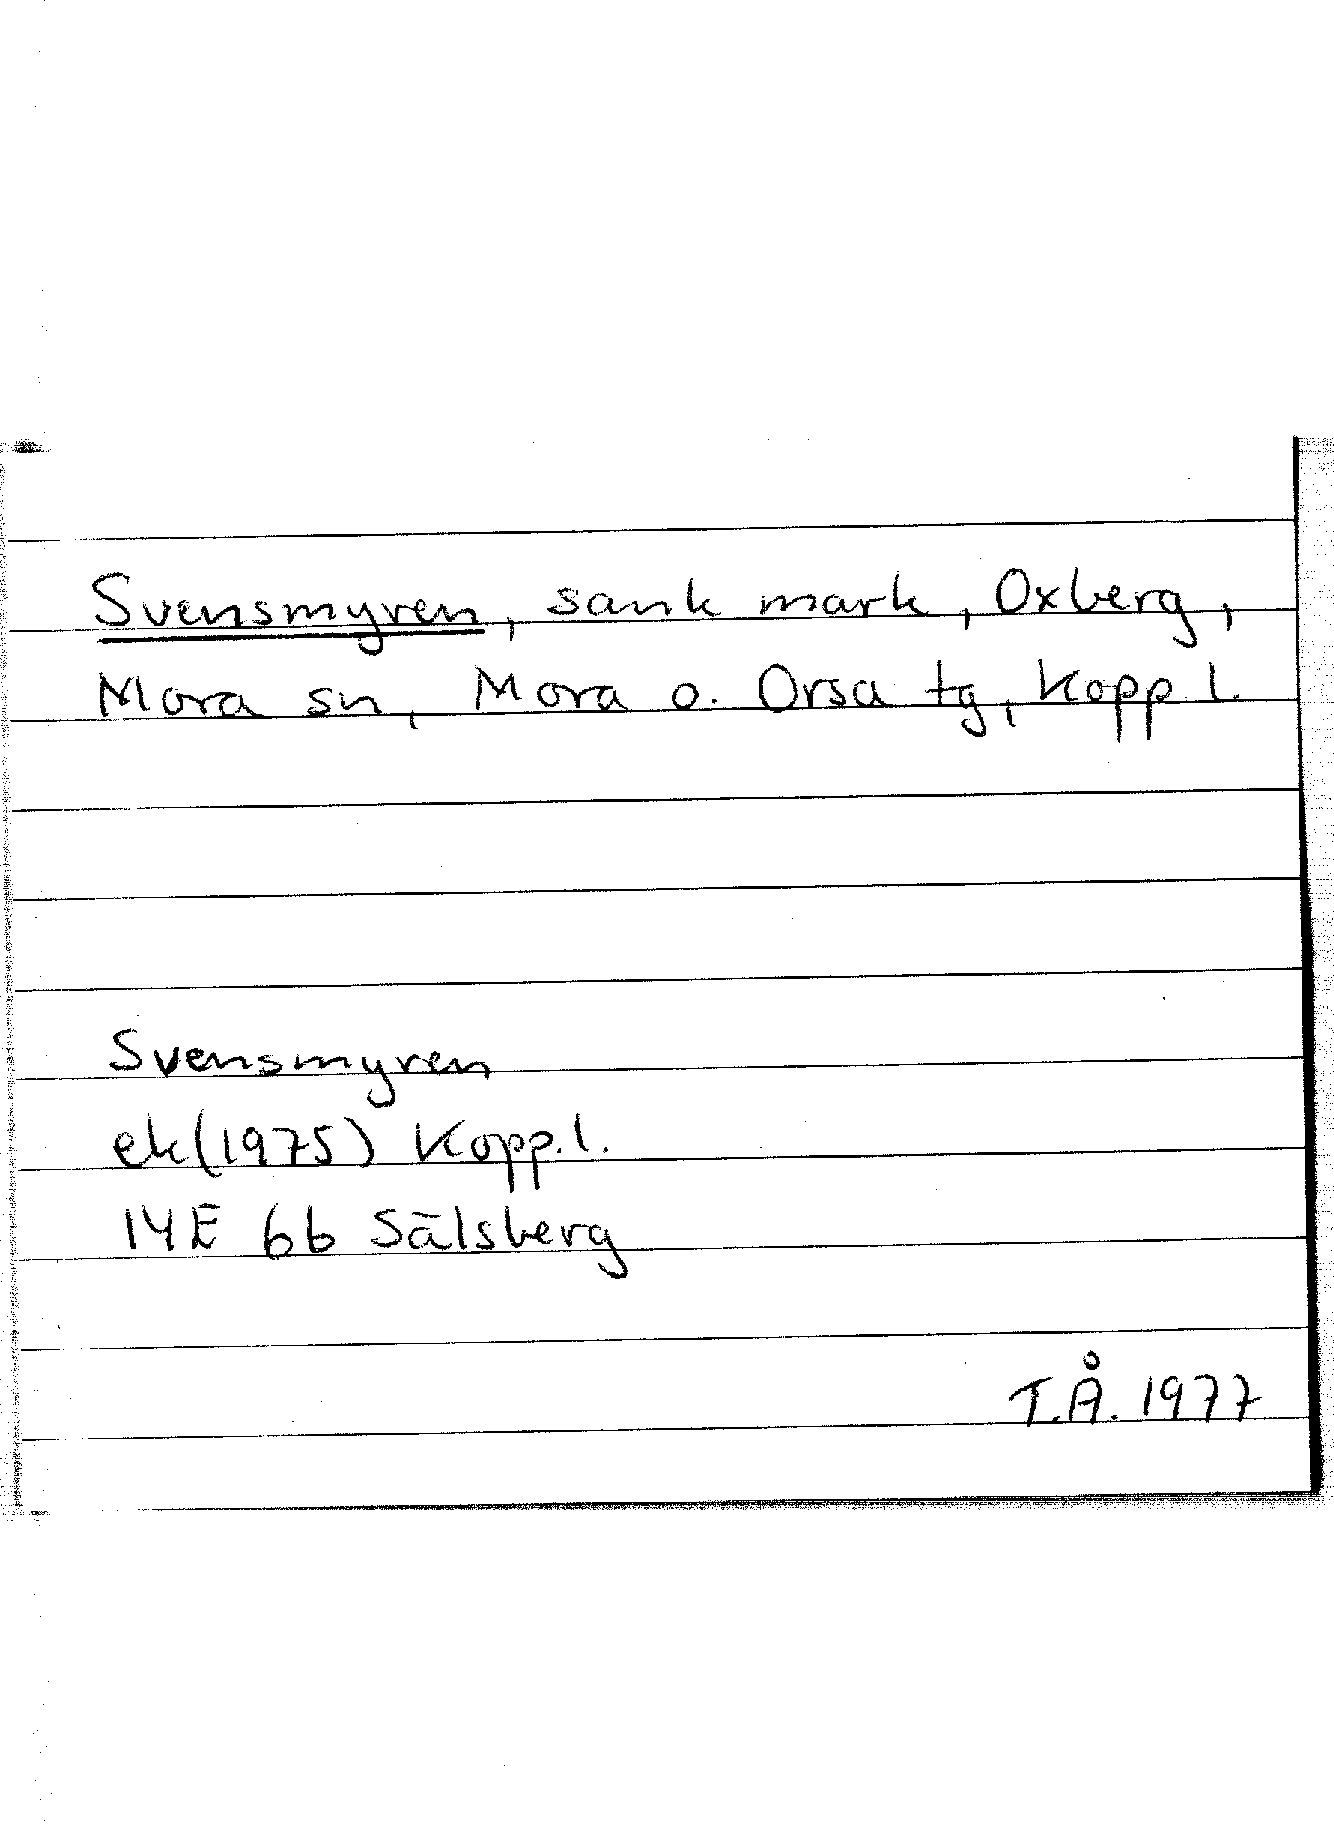 Svensmyren, sank mark, Oxberg,
Mora sn, Mora o. Orsa tg, Kopp l.
Svensmyren
ek(1975) Kopp.l.
14E 6b Sälsberg
T.Å. 1977